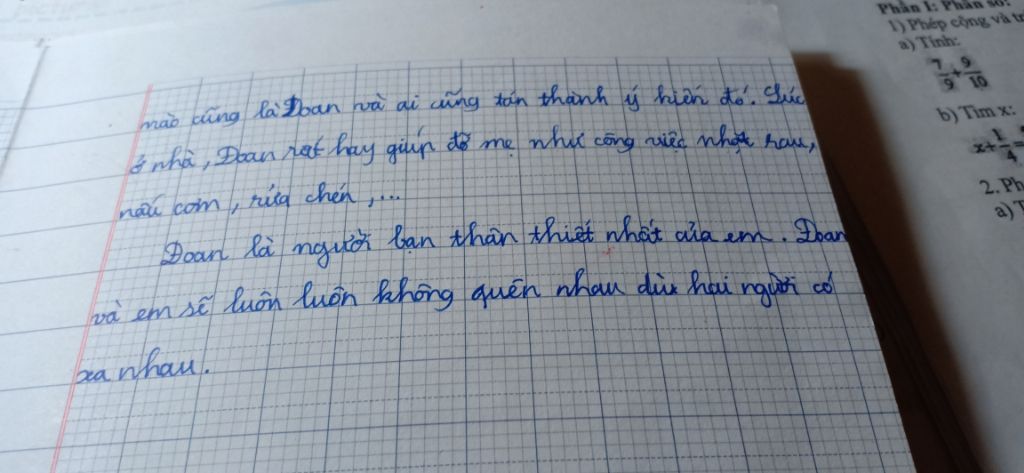 mào cũng là Đoan và ai cũng tán thành ý kiến đó. Lúc
ở nhà, Đoan rất hay giúp đỡ mẹ như công việc nhặt rau,
nấu cơm, rửa chén,...
Đoan là người bạn thân thiết nhất của em. Đoan
và em sẽ luôn luôn không quên nhau dù hai người có
xa nhau.
Phần I: Phân số:
1) Phép cộng và
a) Tính:
7/9 + 9/10
b) Tìm x:
x + 1/4 =
2. Ph
a) T